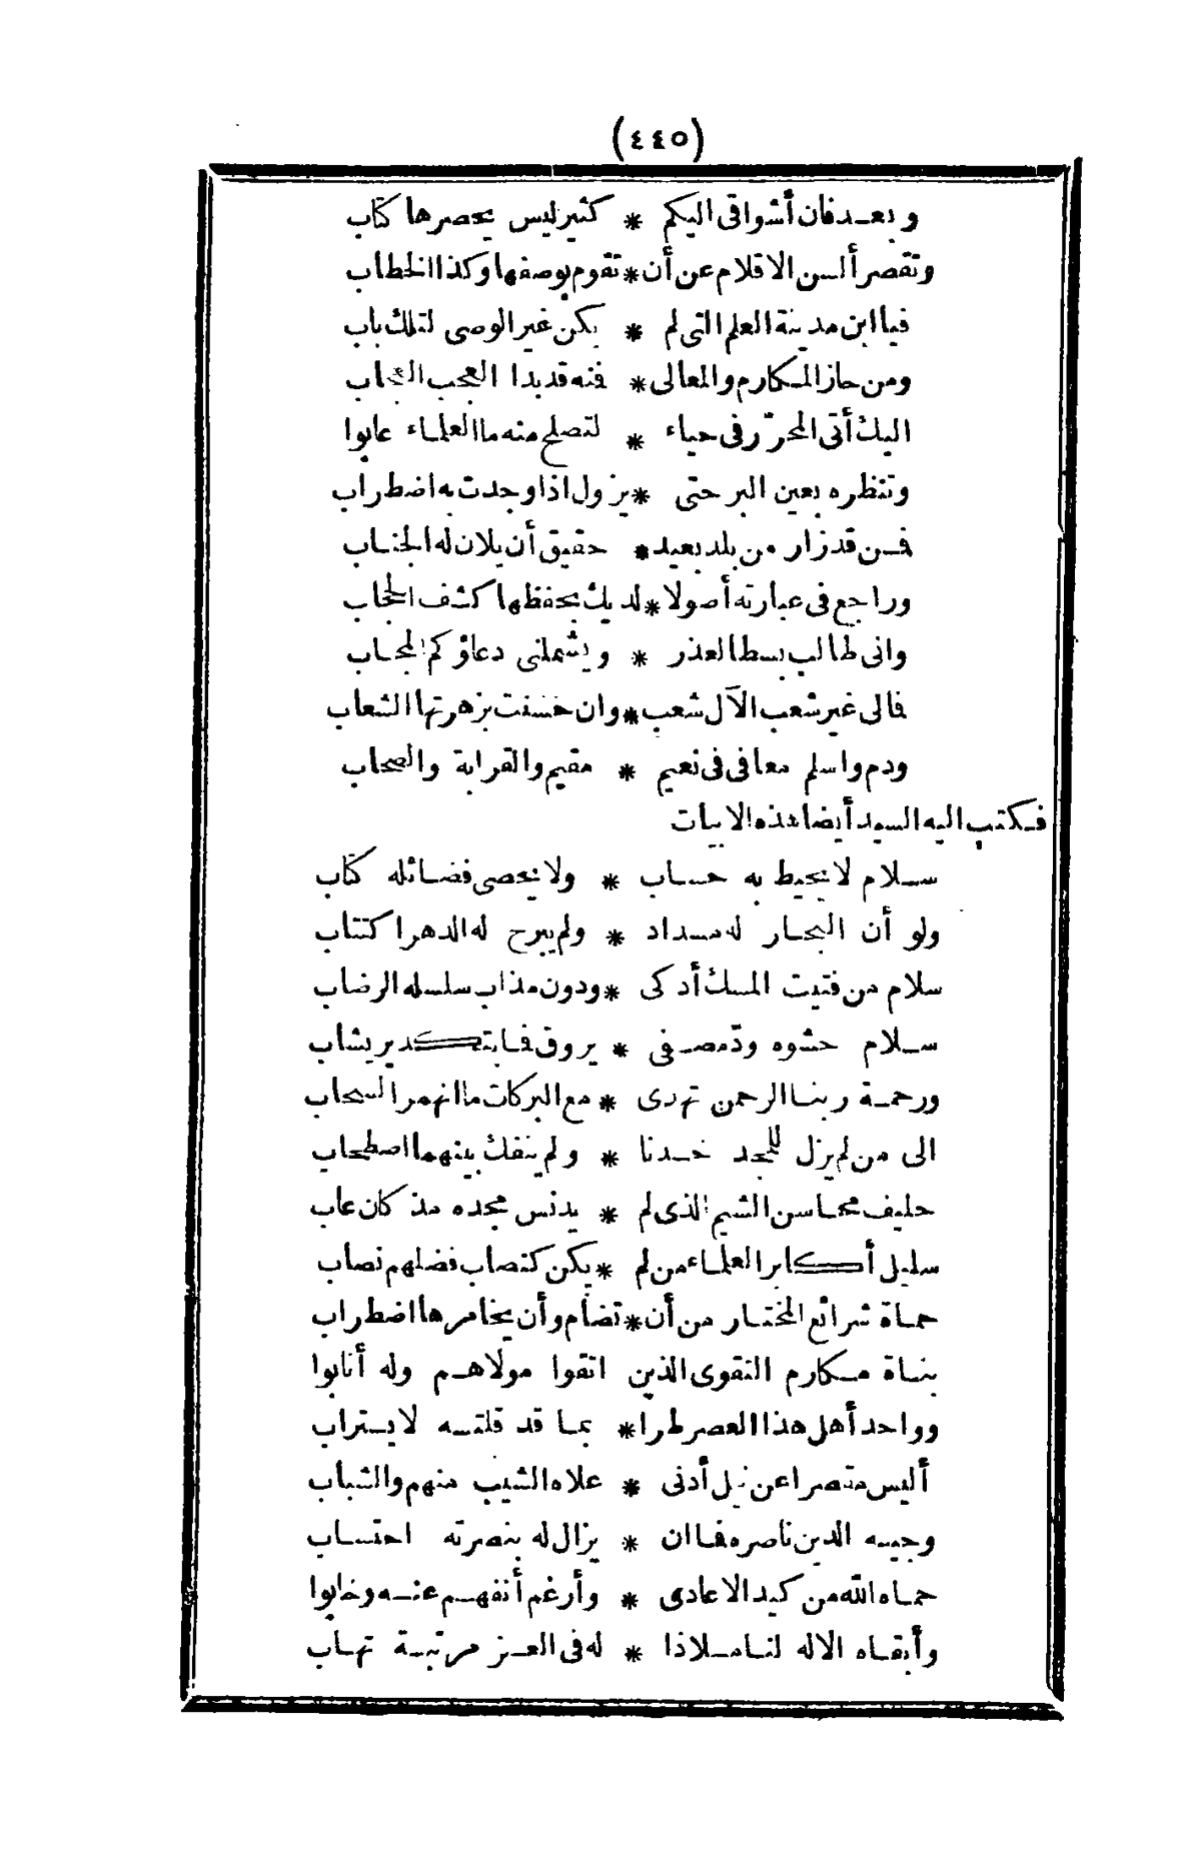 (٤٤٥)
وبعد فان أشواقى اليكم * كثير ليس يحصرها كتاب
وتقصر ألسن الاقلام عن أن * تقوم بوصفها وكذا الخطاب
فيا ابن مدينة العلم التى لم * يكن غير الوصى لتلك باب
ومن حاز المكارم والمعالى * فنه قد بدا العجب العجاب
اليك أتى المحرّر فى حياء * لتصلح منه ما العلماء عابوا
وتنظره بعين البر حتى * يزول اذا وجدت به اضطراب
فمن قد زار من بلد بعيد * حقيق أن يلان له الجناب
وراجع فى عبارته أصولا * لديك بحفظها كشف الحجاب
وانى طالب بسط العذر * ويشملنى دعاؤكم المجاب
فالى غير شعب الآل شعب * وان خسفت بزهرتها الشعاب
ودم واسلم معافى فى نعيم * مقيم والقرابة والصحاب
فكتب اليه السيد أيضا هذه الابيات
سلام لا يحيط به حساب * ولا تحصى فضائله كتاب
ولو أن البحار له مداد * ولم يبرح له الدهر اكتتاب
سلام من فتيت المسك أذكى * ودون مذاب سلسله الرضاب
سلام حشوه ودّ مصفى * يروق فما بتكدير يشاب
ورحمة ربنا الرحمن تهدى * مع البركات ما انهمر السحاب
الى من لم يزل للمجد خدنا * ولم ينفك بينهما اصطحاب
حليف محاسن الشيم الذى لم * يدنس مجده مذ كان عاب
سليل أكابر العلماء من لم * يكن كنصاب فضلهم نصاب
حماة شرائع المختار من أن * تضام وأن يخامرها اضطراب
بناة مكارم التقوى الذين اتقوا مولاهم وله أنابوا
وواحد أهل هذا العصر طرا * بما قد قلته لا يستراب
أليس مقصرا عن نيل أدنى * علاه الشيب منهم والشباب
وجيه الدين ناصره فما ان * يزال له بنصرته احتساب
حماه الله من كيد الاعادى * وأرغم أنفهم عنه وخابوا
وأبقاه الاله لنا ملاذا * له فى العز مرتبة تهاب